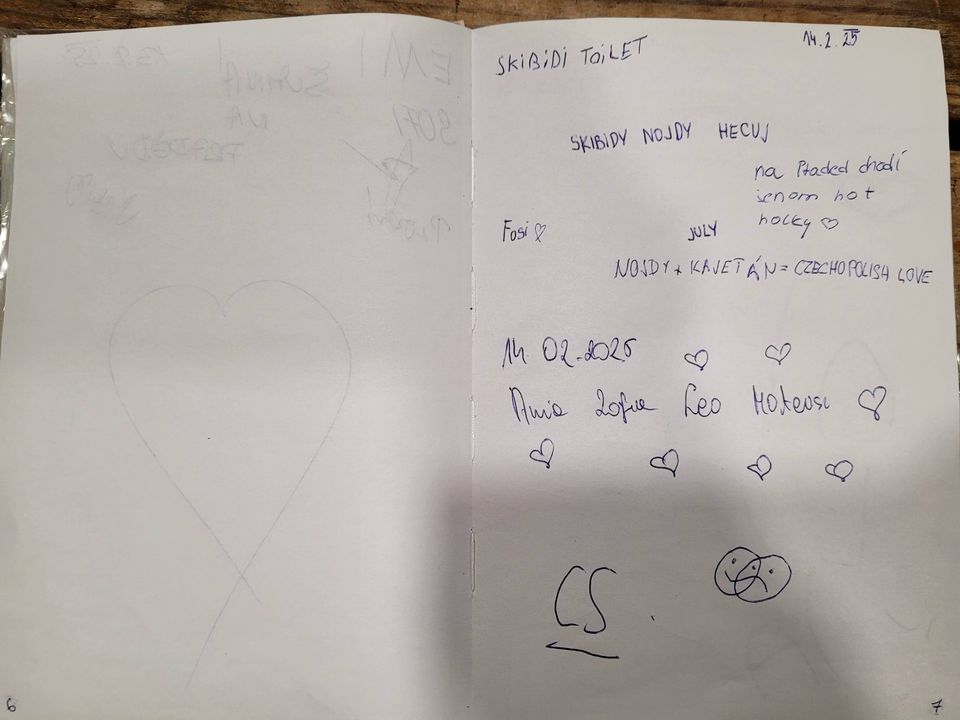 14.2.25
SKIBIDI TOILET
SKIBIDY NOJDY HECUJ
na Praded chodí
jenom hot
holky
Fosi
JULY
NOJDY + KAJETÁN = CZECHOPOLISH LOVE
14.02.2025
Ania Zofia Leo Mateusz
CS
6
7